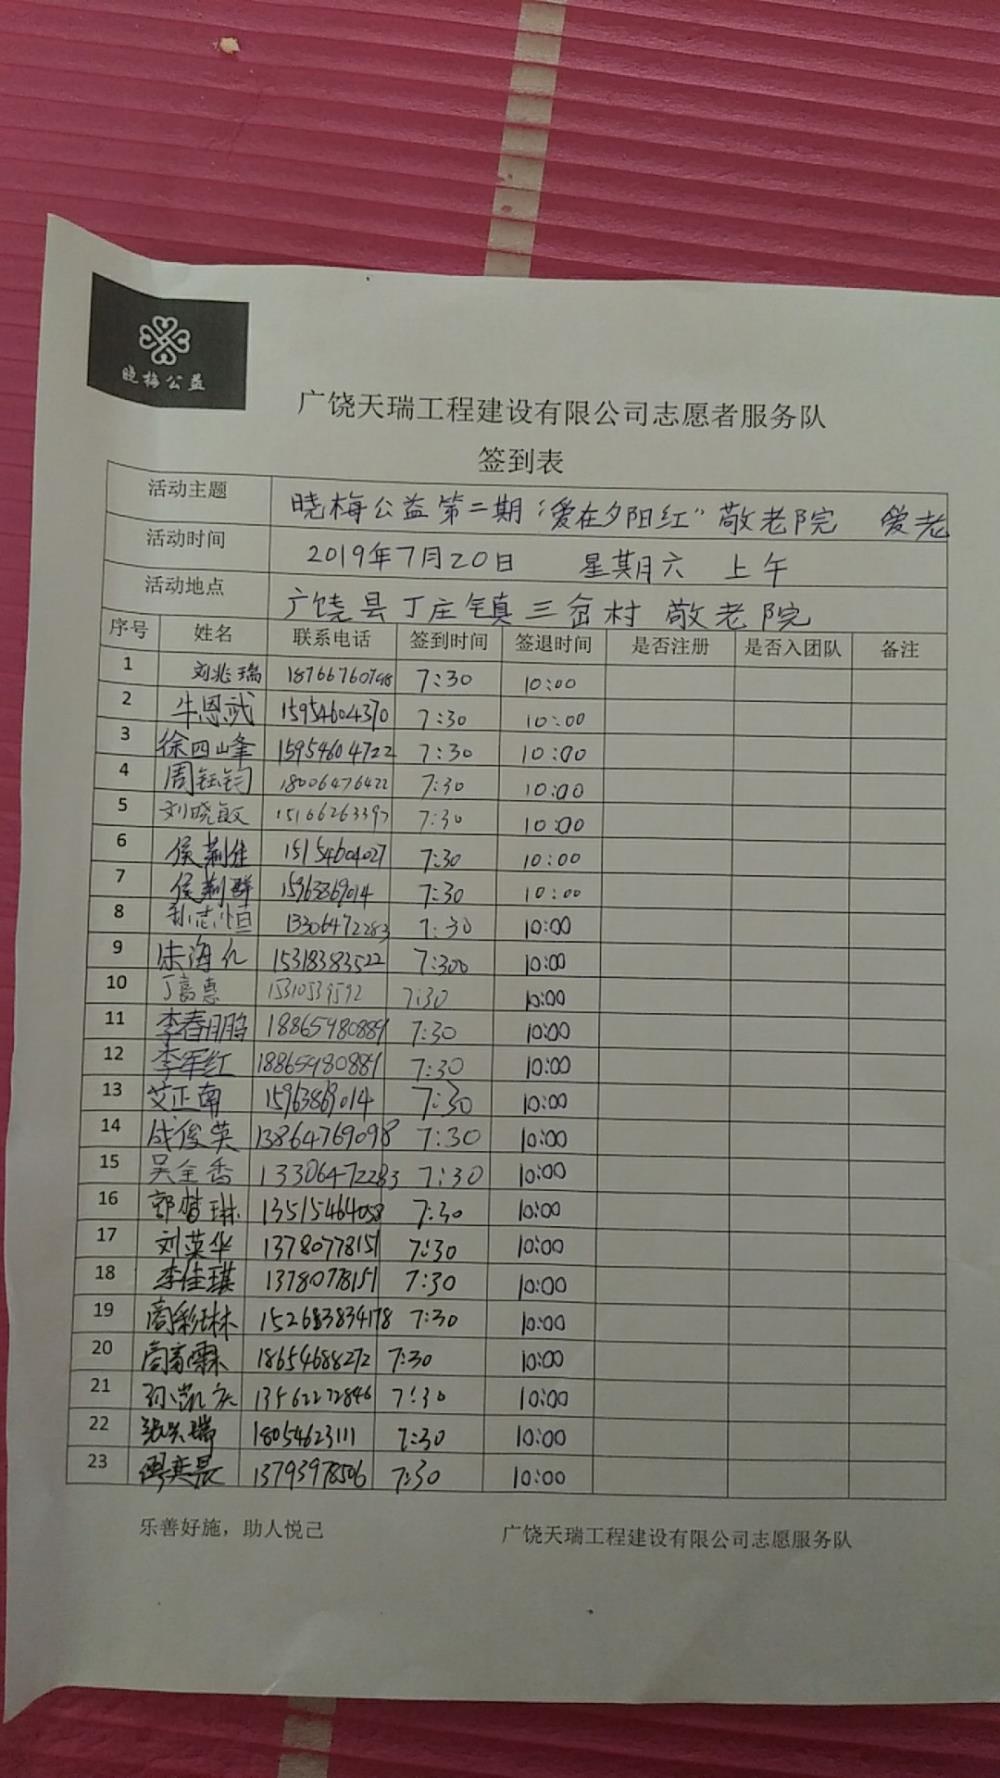 晓梅公益
广饶天瑞工程建设有限公司志愿者服务队
签到表
活动主题 晓梅公益第二期“爱在夕阳红”敬老院 爱老
活动时间 2019年7月20日 星期六 上午
活动地点 广饶县丁庄镇三岔村 敬老院
序号 姓名 联系电话 签到时间 签退时间 是否注册 是否入团队 备注
1 刘兆瑞 18766760798 7:30 10:00
2 牛恩武 15954604370 7:30 10:00
3 徐四峰 15954604722 7:30 10:00
4 周钰钧 18006476422 7:30 10:00
5 刘晓敏 15166263397 7:30 10:00
6 侯荆佳 15154604027 7:30 10:00
7 侯荆群 15963869014 7:30 10:00
8 孙志恒 13306472283 7:30 10:00
9 海 15318383522 7:300 10:00
10 丁高惠 15310539592 7:30 10:00
11 李春鹏 18865980889 7:30 10:00
12 李军红 18865980889 7:30 10:00
13 艾正南 15963869014 7:30 10:00
14 成俊英 13864769098 7:30 10:00
15 吴全香 13306472283 7:30 10:00
16 郭梦琳 13515464058 7:30 10:00
17 刘英华 13780778151 7:30 10:00
18 李佳琪 13780778151 7:30 10:00
19 周彩琳 152683834178 7:30 10:00
20 18654688272 7:30 10:00
21 孙凯 13562272846 7:30 10:00
22 张兴瑞 18054623111 7:30 10:00
23 13793978506 7:30 10:00
乐善好施，助人悦己 广饶天瑞工程建设有限公司志愿服务队